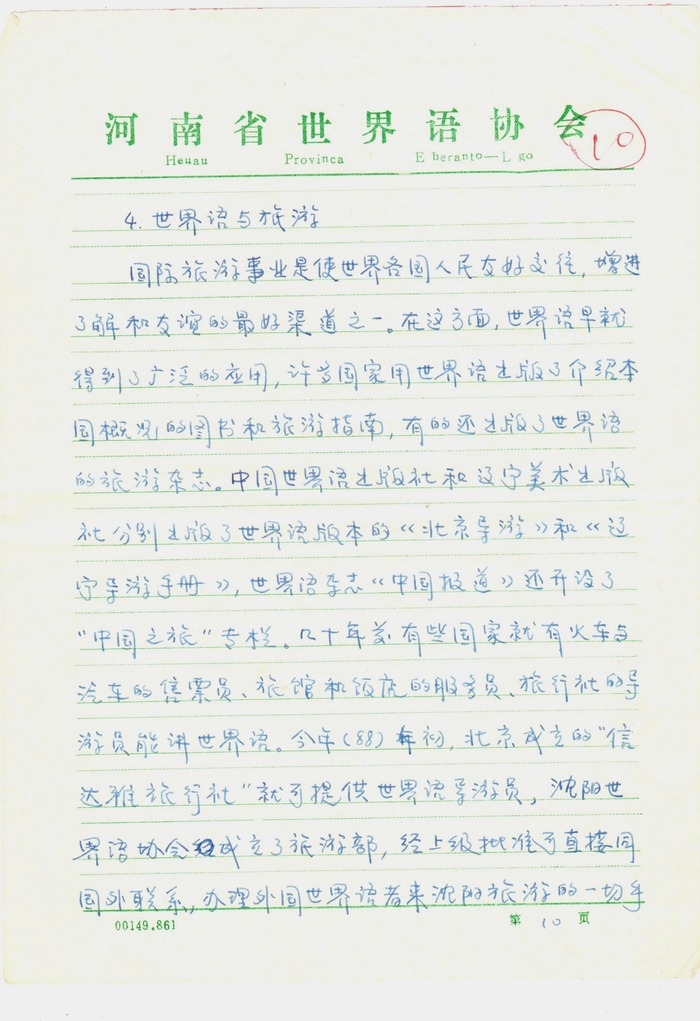 河南省世界语协会
10
Heuau Provinca E beranto—L go
4. 世界语与旅游
国际旅游事业是使世界各国人民友好交往，增进
了解和友谊的最好渠道之一。在这方面，世界语早就
得到了广泛的应用，许多国家用世界语出版了介绍本
国概况的图书和旅游指南，有的还出版了世界语
的旅游杂志。中国世界语出版社和辽宁美术出版
社分别出版了世界语版本的《北京导游》和《辽
宁导游手册》，世界语杂志《中国报道》还开设了
“中国之旅”专栏。几十年前有些国家就有火车与
汽车的售票员、旅馆和饭店的服务员、旅行社的导
游员能讲世界语。今年（88）年初，北京成立的“信
达雅旅行社”就可提供世界语导游员，沈阳世
界语协会成立了旅游部，经上级批准可直接同
国外联系，办理外国世界语者来沈阳旅游的一切手
00149.861 第 10 页